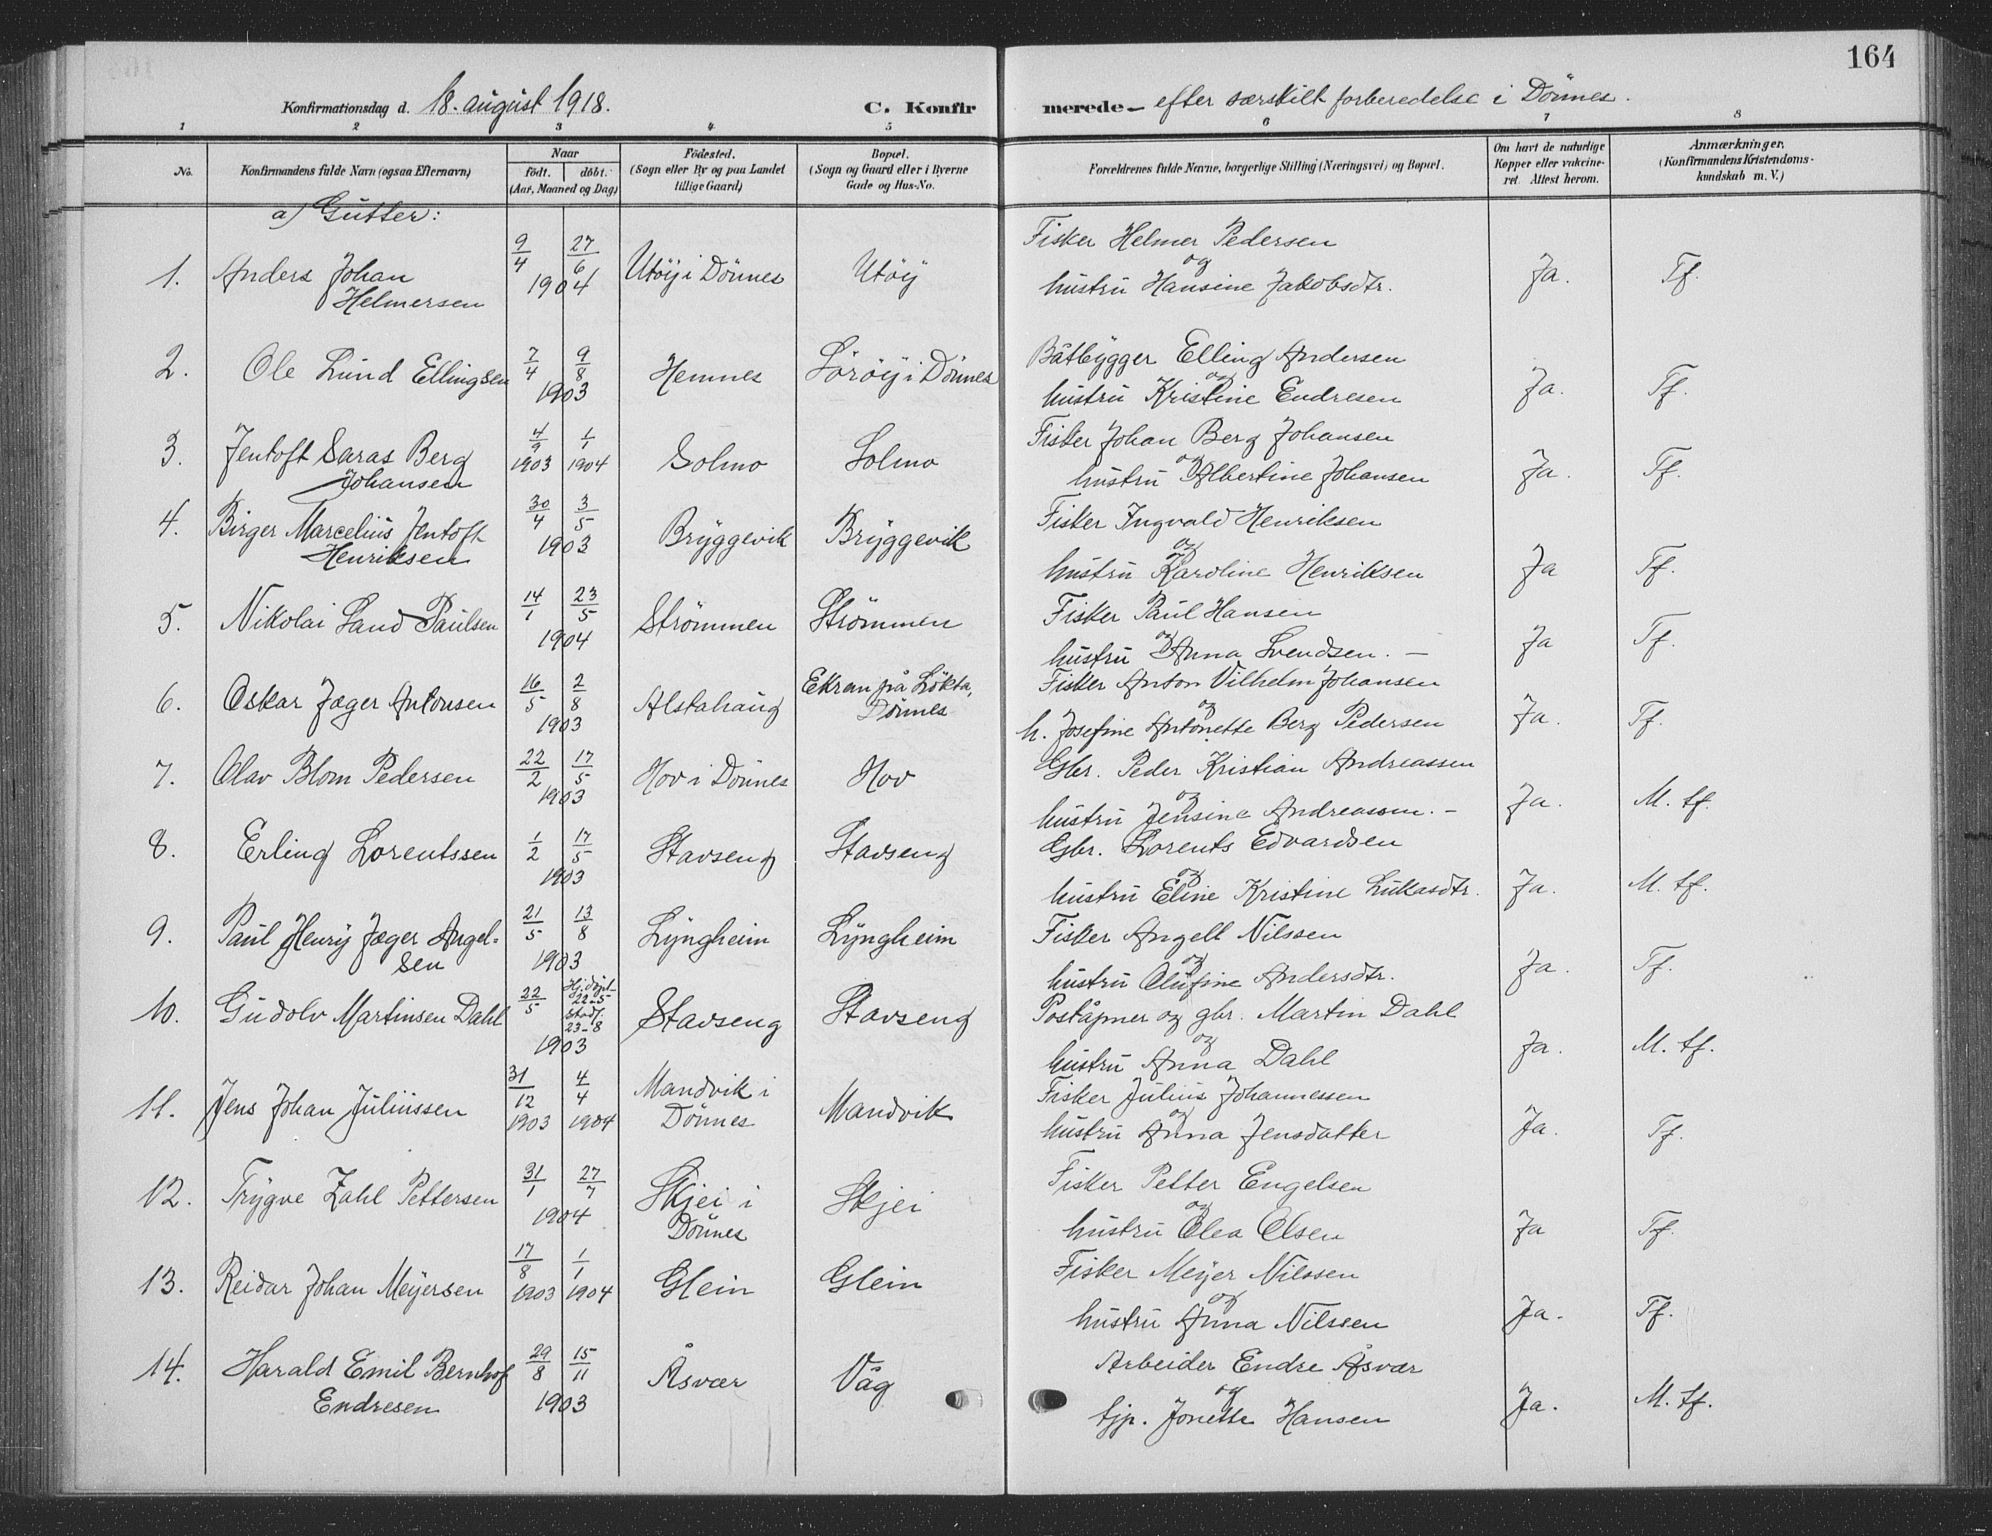 164
Konfirmationsdag d. 18. august 1918. C. Konfirmerede – efter særskilt forberedelse i Dönnes.
1 2 3 4 5 6 7 8
No. Konfirmandens fulde Navn (ogsaa Efternavn) Naar födt. döbt. (Aar, Maaned og Dag) Födested. (Sogn eller By og paa Landet tillige Gaard) Bopæl. (Sogn og Gaard eller i Byerne Gade og Hus-No. Forældrenes fulde Navne, borgerlige Stilling (Næringsvei) og Bopæl. Om havt de naturlige Kopper eller vakcineret. Attest herom. Anmærkninger, (Konfirmandens Kristendomskundskab m. V.)
a) Gutter:
1. Anders Johan Helmersen 9/4 27/6 1904 Utöy i Dönnes Utöy Fisker Helmer Pedersen og hustru Hansine Jakobsdtr. Ja. Tf.
2. Ole Lund Ellingsen 7/4 9/8 1903 Hemnes Söröy i Dönnes Båtbygger Elling Andersen og hustru Kristine Endresen Ja. Tf.
3. Jentoft Saras Berg Johansen 4/9 1903 1/1 1904 Solmo Solmo Fisker Johan Berg Johansen og hustru Albertine Johansen Ja. Tf.
4. Birger Marcelius Jentoft Henriksen 30/4 3/5 1903 Bryggevik Bryggevik Fisker Ingvald Henriksen og hustru Karoline Henriksen Ja Tf.
5. Nikolai Sand Paulsen 14/1 23/5 1904 Strömmen Strömmen Fisker Paul Hansen og hustru Anna Svendsen. – Ja Tf.
6. Oskar Jæger Antonsen 16/5 2/8 1903 Alstahaug Ekran på Lökta, Dönnes Fisker Anton Vilhelm Johansen og h. Josefine Antonette Berg Pedersen Ja. Tf.
7. Olav Blom Pedersen 22/2 17/5 1903 Hov i Dönnes Hov Gbr. Peder Kristian Andreassen og hustru Jensine Andreassen. – Ja. M. tf.
8. Erling Lorentssen 1/2 17/5 1903 Stavseng Stavseng Gbr. Lorents Edvardsen og hustru Eline Kristine Lukasdtr. Ja. M. tf.
9. Paul Henry Jæger Angelsen 21/5 13/8 1903 Lyngheim Lyngheim Fisker Angell Nilssen og hustru Olufine Andersdtr. Ja. Tf.
10. Gudolv Martinsen Dahl 22/5 Hj. döpt 22-5 Stadf. 23-8 1903 Stavseng Stavseng Poståpner og gbr. Martin Dahl og hustru Anna Dahl Ja. M. tf.
11. Jens Johan Juliussen 31/12 1903 4/4 1904 Mandvik i Dönnes Mandvik Fisker Julius Johannessen og hustru Anna Jensdatter Ja. Tf.
12. Trygve Zahl Pettersen 31/1 27/7 1904 Skjei i Dönnes Skjei Fisker Petter Engelsen og hustru Olea Olsen Ja Tf.
13. Reidar Johan Meyersen 17/8 1903 1/1 1904 Glein Glein Fisker Meyer Nilssen og hustru Anna Nilssen Ja. Tf.
14. Harald Emil Bernhof Endresen 29/8 15/11 1903 Åsvær Våg Arbeider Endre Åsvær og tjp. Jonette Hansen Ja. M. tf.